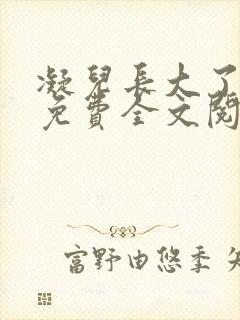 凝兒長大了
免費全文閱
富野由悠季